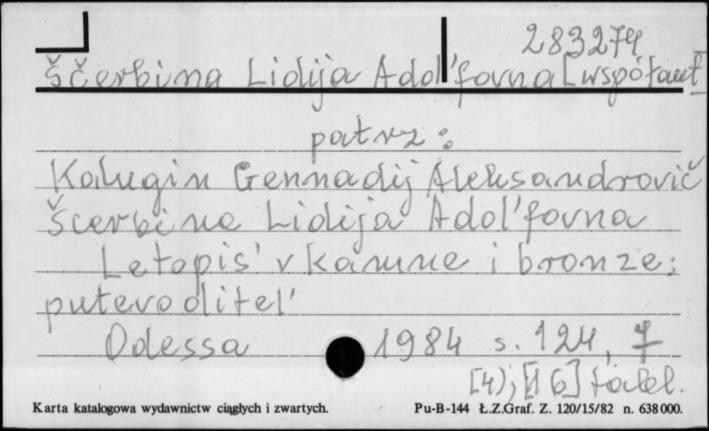 283274
Ščerbina Lidija Adol'fovna [współaut
patrz:
Kalugin Gennadij Aleksandrovič
Ščerbina Lidija Adol'fovna
Letopis' v kamne i bronze:
putevoditel'
Odessa 1984 s. 124,
[4], [16] tabl.
Karta katalogowa wydawnictw ciągłych i zwartych. Pu-B-144 Ł.Z.Graf. Z. 120/15/82 n. 638 000.